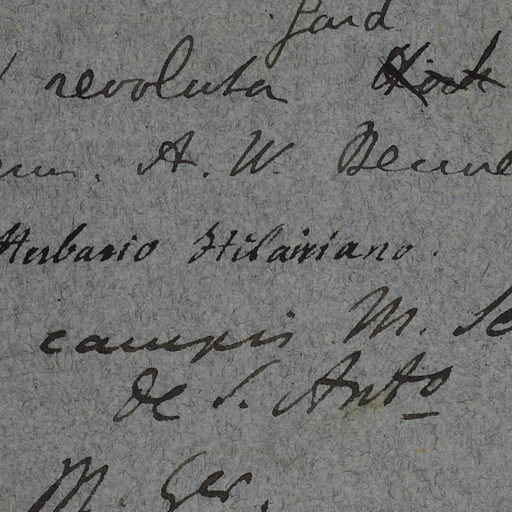 Gard
revoluta
A. W. Benne
Herbario Hilairiano.
campis M. Se
de S. Anto
M. Ger.